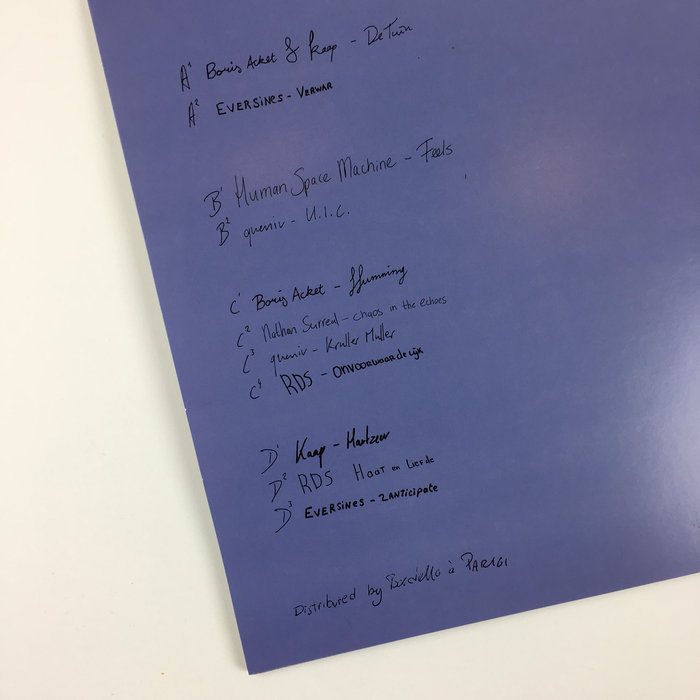 A1 Boris Acket & Kaap - De Tuin
A2 EVERSINES - VERWAR
B1 Human Space Machine - Feels
B2 queniv - U.I.C.
C1 Boris Acket - Humming
C2 Nathan Surreal - chaos in the echoes
C3 queniv - Kruller Muller
C4 RDS - ONVOORWAARDELIJK
D1 Kaap - Hartzeer
D2 RDS HAAT en LIEFde
D3 EVERSINES - 2ANTICIPATE
Distributed by Bordello à PARIGI